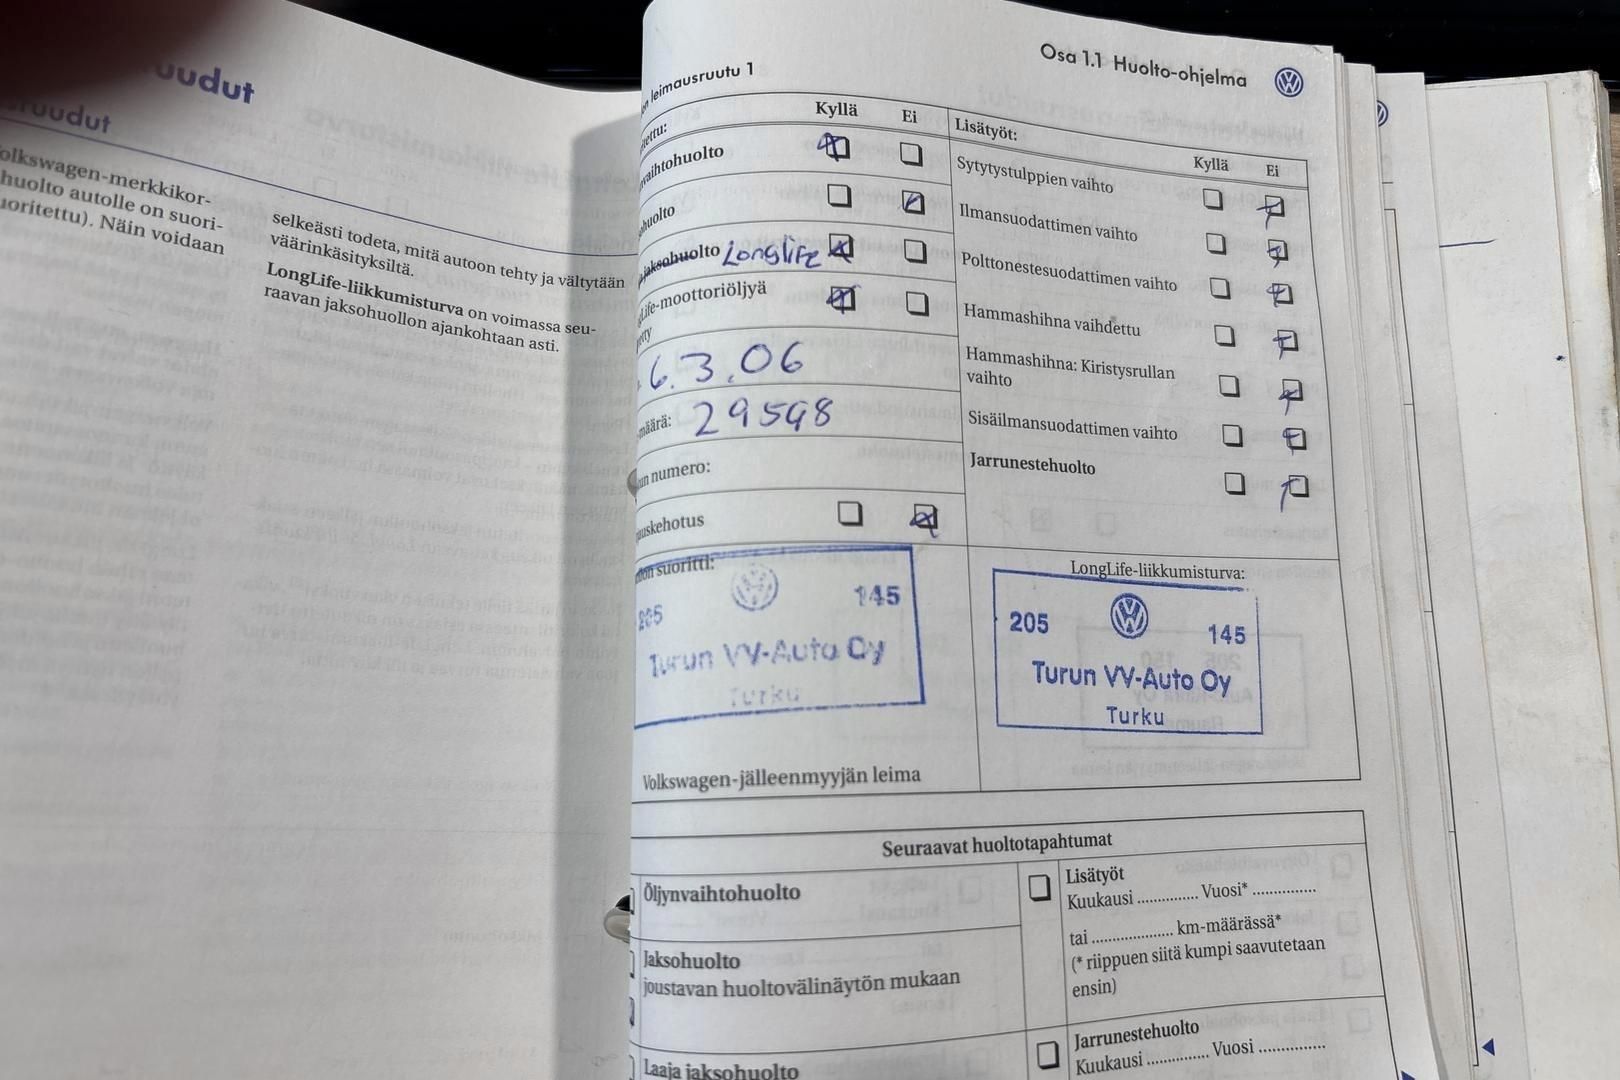 udut
ruudut
Volkswagen-merkkikor-
huolto autolle on suori-
Näin voidaan
selkeästi todeta, mitä autoon tehty ja vältytään
väärinkäsityksiltä.
LongLife-liikkumisturva on voimassa seu-
raavan jaksohuollon ajankohtaan asti.
Osa 1.1 Huolto-ohjelma
leimausruutu 1
Kyllä Ei
vaihtohuolto
huolto
jaksohuolto Longlife
Life-moottoriöljyä
6.3.06
määrä: 29598
numero:
uskehotus
Lisätyöt:
Kyllä Ei
Sytytystulppien vaihto
Ilmansuodattimen vaihto
Polttonestesuodattimen vaihto
Hammashihna vaihdettu
Hammashihna: Kiristysrullan
vaihto
Sisäilmansuodattimen vaihto
Jarrunestehuolto
suoritti:
205 145
Turun VV-Auto Oy
Turku
Volkswagen-jälleenmyyjän leima
LongLife-liikkumisturva:
205 145
Turun VV-Auto Oy
Turku
Seuraavat huoltotapahtumat
Öljynvaihtohuolto
Jaksohuolto
joustavan huoltovälinäytön mukaan
Laaja jaksohuolto
Lisätyöt
Kuukausi .............. Vuosi* ...............
tai ................... km-määrässä*
(* riippuen siitä kumpi saavutetaan
ensin)
Jarrunestehuolto
Kuukausi .............. Vuosi ...............